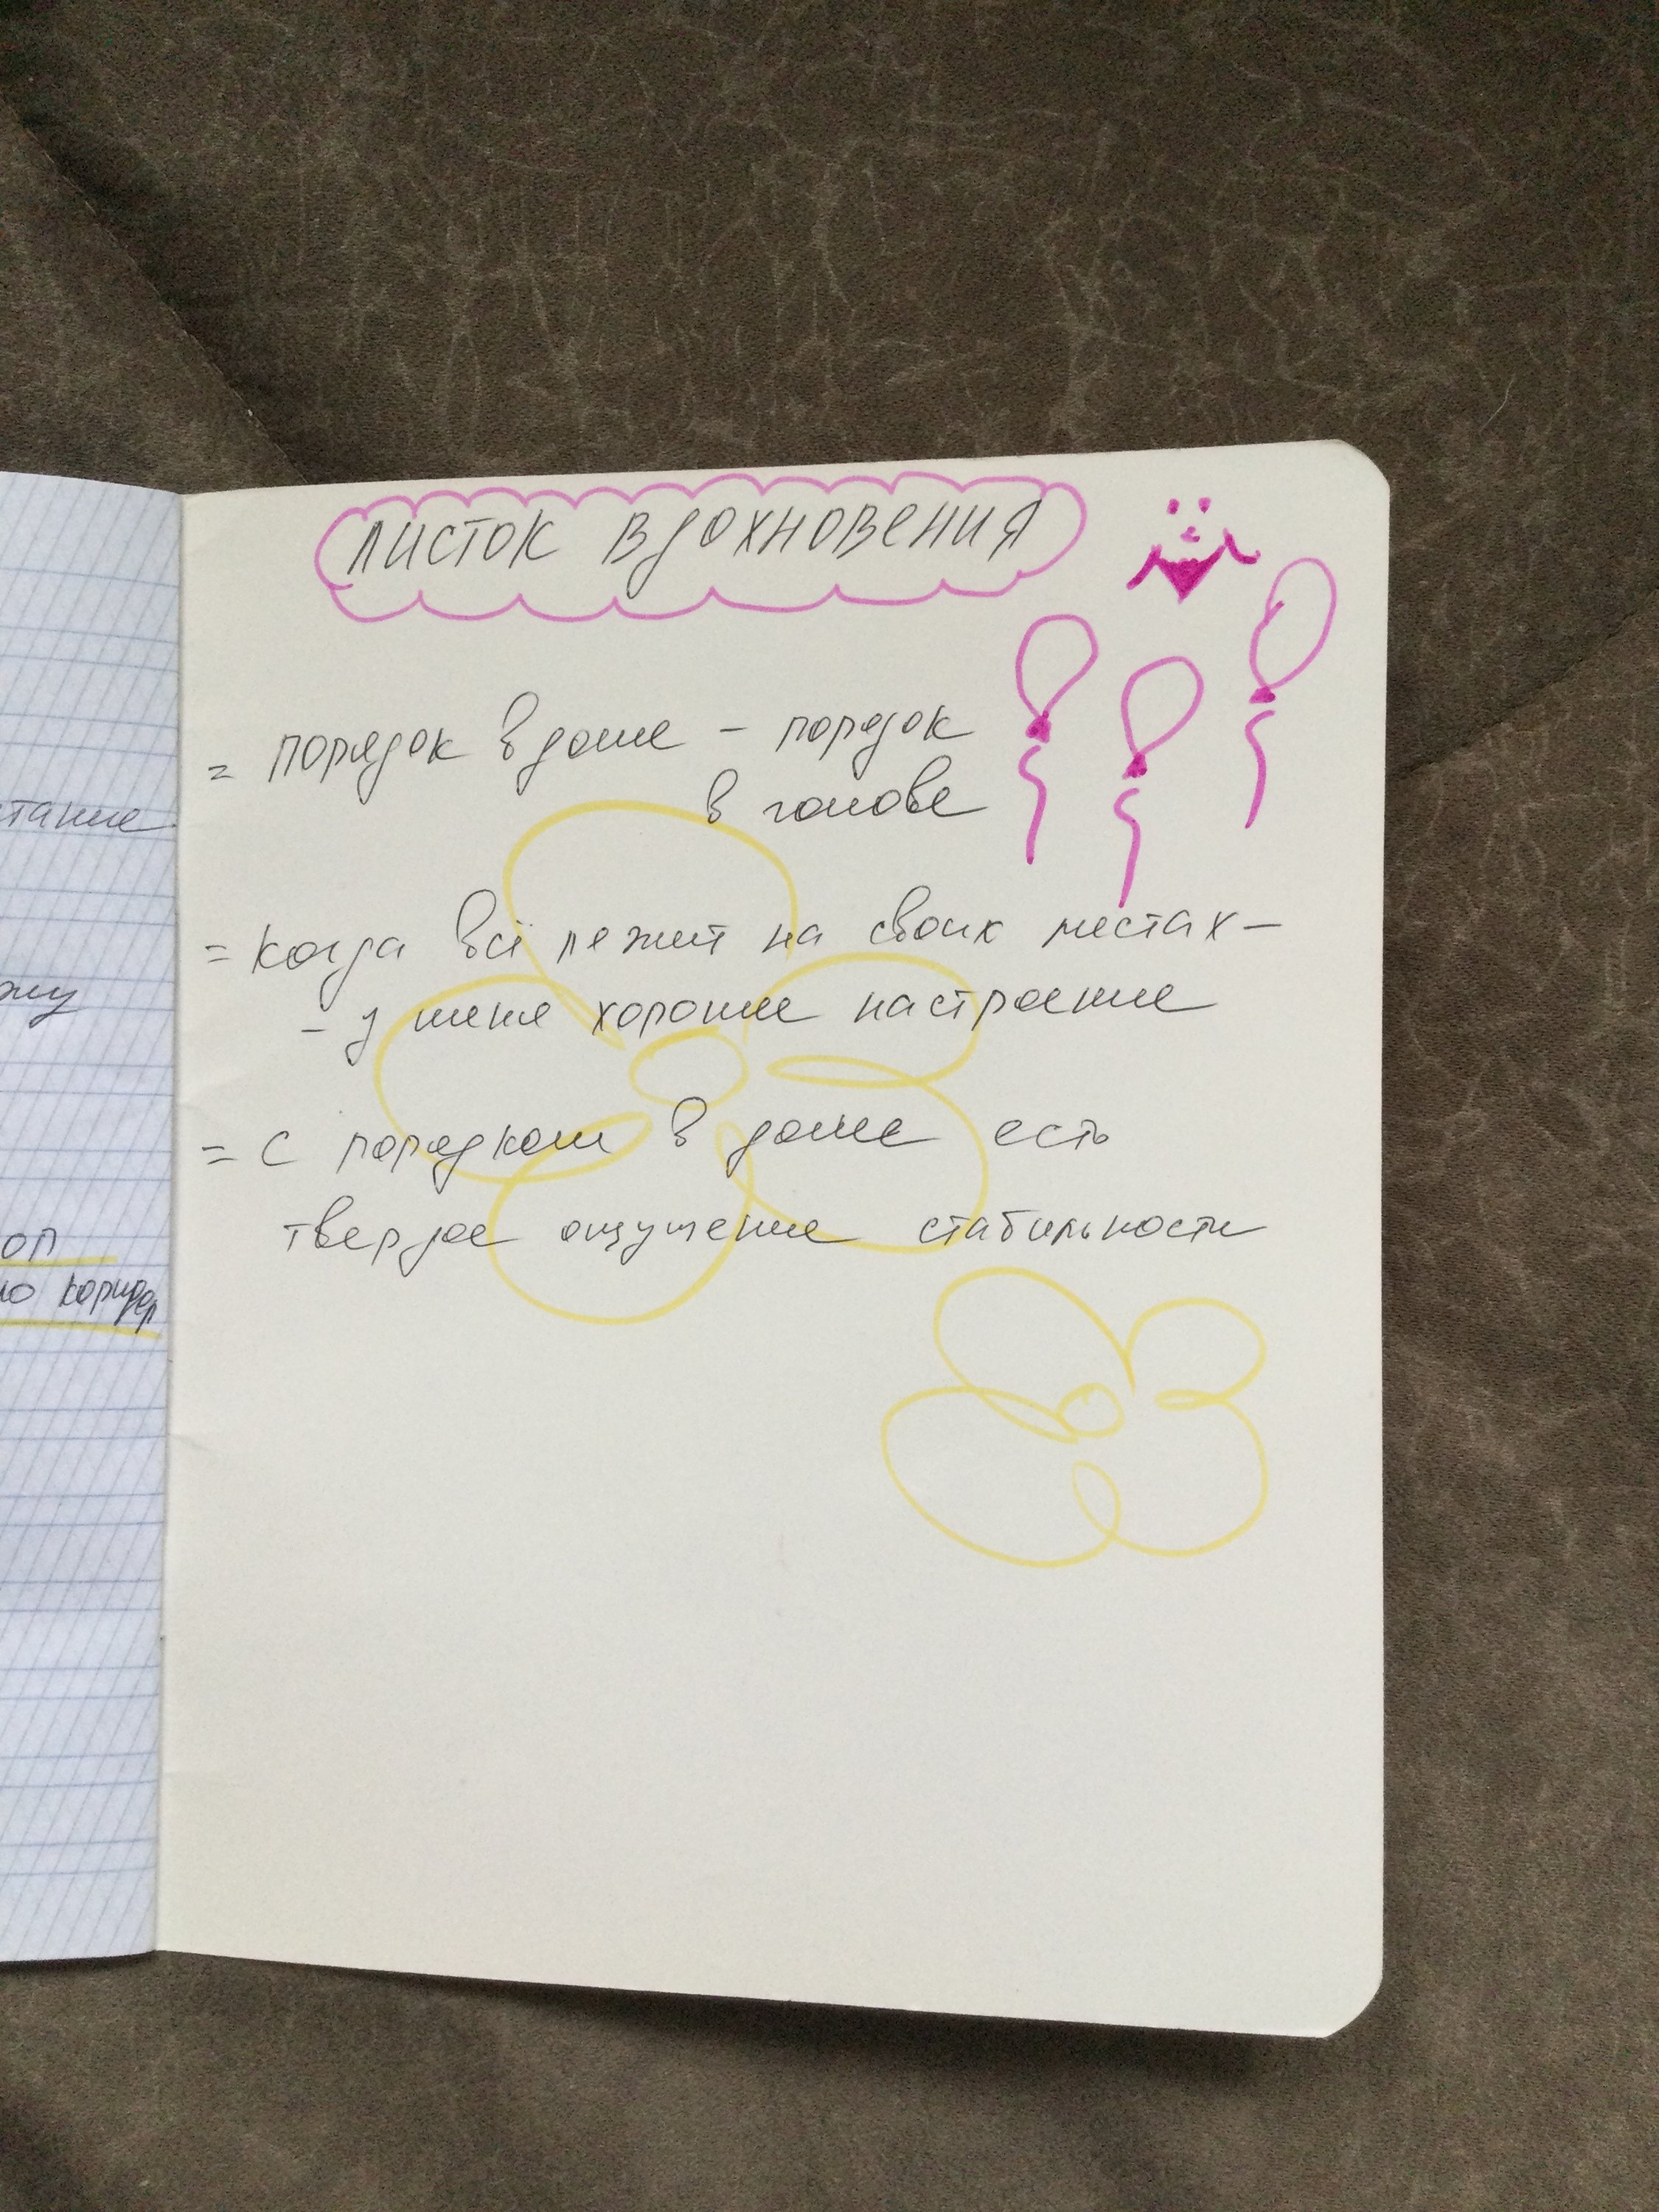 ЛИСТОК ВДОХНОВЕНИЯ
= порядок в доме - порядок
в голове
= когда всё лежит на своих местах -
- у меня хорошее настроение
= с порядком в доме есть
твердое ощущение стабильности
коридор